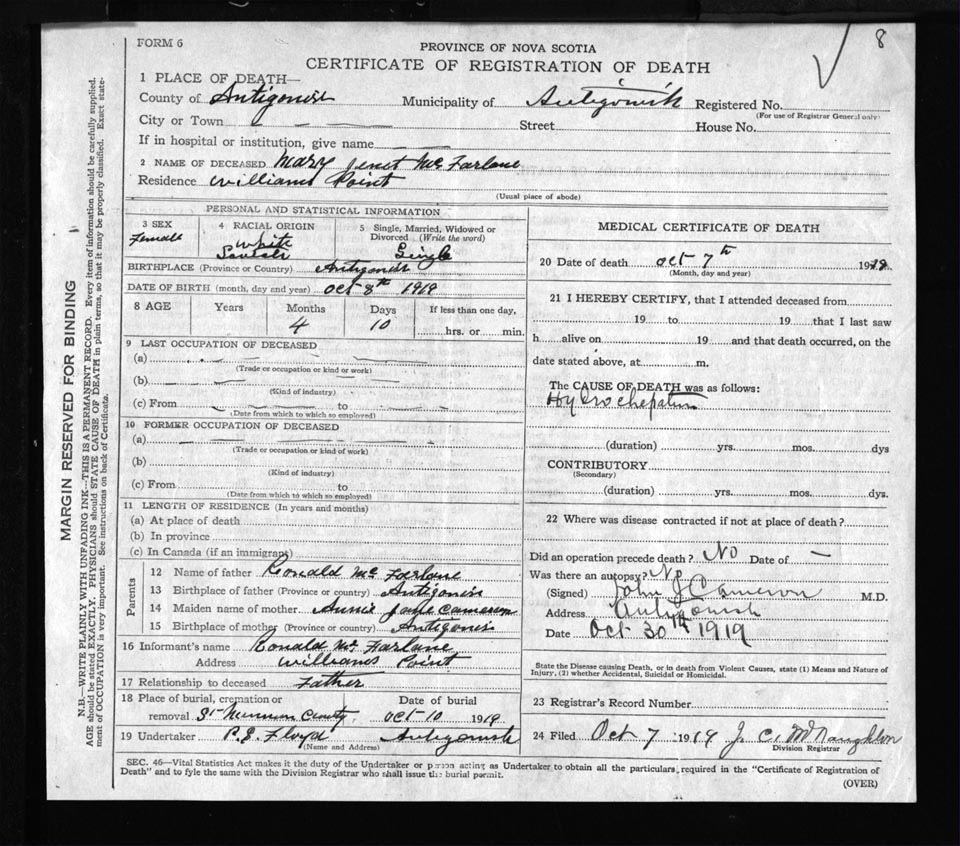 FORM 6
8
PROVINCE OF NOVA SCOTIA
CERTIFICATE OF REGISTRATION OF DEATH
1 PLACE OF DEATH—
County of Antigonish Municipality of Antigonish Registered No.
(For use of Registrar General only)
City or Town Street House No.
If in hospital or institution, give name
2 NAME OF DECEASED Mary Jenet McFarlane
Residence Williams Point
(Usual place of abode)
PERSONAL AND STATISTICAL INFORMATION
3 SEX 4 RACIAL ORIGIN 5 Single, Married, Widowed or
Divorced (Write the word)
Female White Single
BIRTHPLACE (Province or Country) Antigonish
DATE OF BIRTH (month, day and year) Oct 8th 1919
8 AGE Years Months Days If less than one day,
4 10 hrs. or min.
9 LAST OCCUPATION OF DECEASED
(a)
(Trade or occupation or kind or work)
(b)
(Kind of industry)
(c) From to
(Date from which to which so employed)
10 FORMER OCCUPATION OF DECEASED
(a)
(Trade or occupation or kind of work)
(b)
(Kind of industry)
(c) From to
(Date from which to which so employed)
11 LENGTH OF RESIDENCE (In years and months)
(a) At place of death
(b) In province
(c) In Canada (if an immigrant)
Parents
12 Name of father Ronald McFarlane
13 Birthplace of father (Province or country) Antigonish
14 Maiden name of mother Annie Cameron
15 Birthplace of mother (Province or country) Antigonish
16 Informant's name Ronald McFarlane
Address Williams Point
17 Relationship to deceased Father
18 Place of burial, cremation or Date of burial
removal St Oct 10 1919
19 Undertaker P.S. Floyd Antigonish
(Name and Address)
MEDICAL CERTIFICATE OF DEATH
20 Date of death Oct 7th 1919
(Month, day and year)
21 I HEREBY CERTIFY, that I attended deceased from
19 to 19 that I last saw
h alive on 19 and that death occurred, on the
date stated above, at m.
The CAUSE OF DEATH was as follows:
(duration) yrs. mos. dys
CONTRIBUTORY
(Secondary)
(duration) yrs. mos. dys.
22 Where was disease contracted if not at place of death?
Did an operation precede death? No Date of —
Was there an autopsy? No
(Signed) John J Cameron M.D.
Address Antigonish
Date Oct 30th 1919
State the Disease causing Death, or in death from Violent Causes, state (1) Means and Nature of
Injury, (2) whether Accidental, Suicidal or Homicidal.
23 Registrar's Record Number
24 Filed Oct 7 1919 J. C. McNaughton
Division Registrar
SEC. 46—Vital Statistics Act makes it the duty of the Undertaker or person acting as Undertaker to obtain all the particulars required in the "Certificate of Registration of
Death" and to fyle the same with the Division Registrar who shall issue the burial permit.
(OVER)
MARGIN RESERVED FOR BINDING
N.B.—WRITE PLAINLY WITH UNFADING INK—THIS IS A PERMANENT RECORD. Every item of information should be carefully supplied.
AGE should be stated EXACTLY. PHYSICIANS should STATE CAUSE OF DEATH in plain terms, so that it may be properly classified. Exact state-
ment of OCCUPATION is very important. See instructions on back of Certificate.